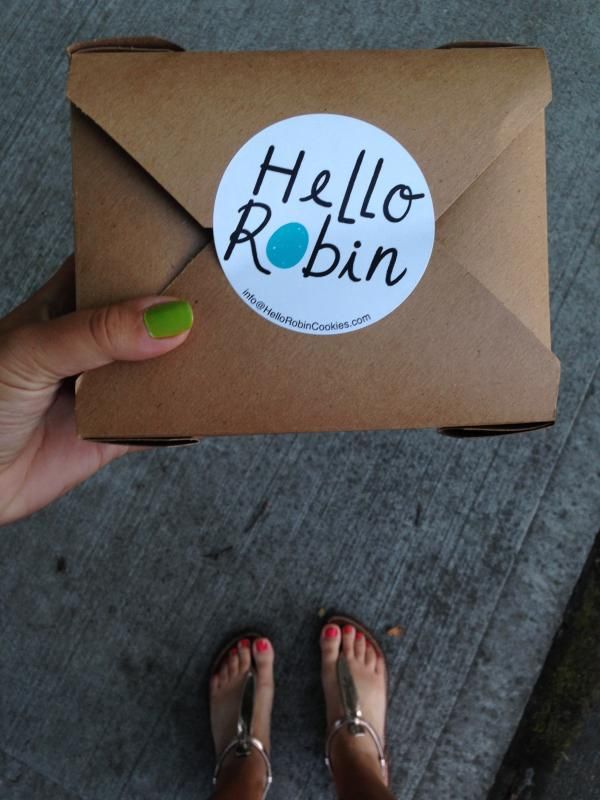 Hello
Robin
info@HelloRobinCookies.com